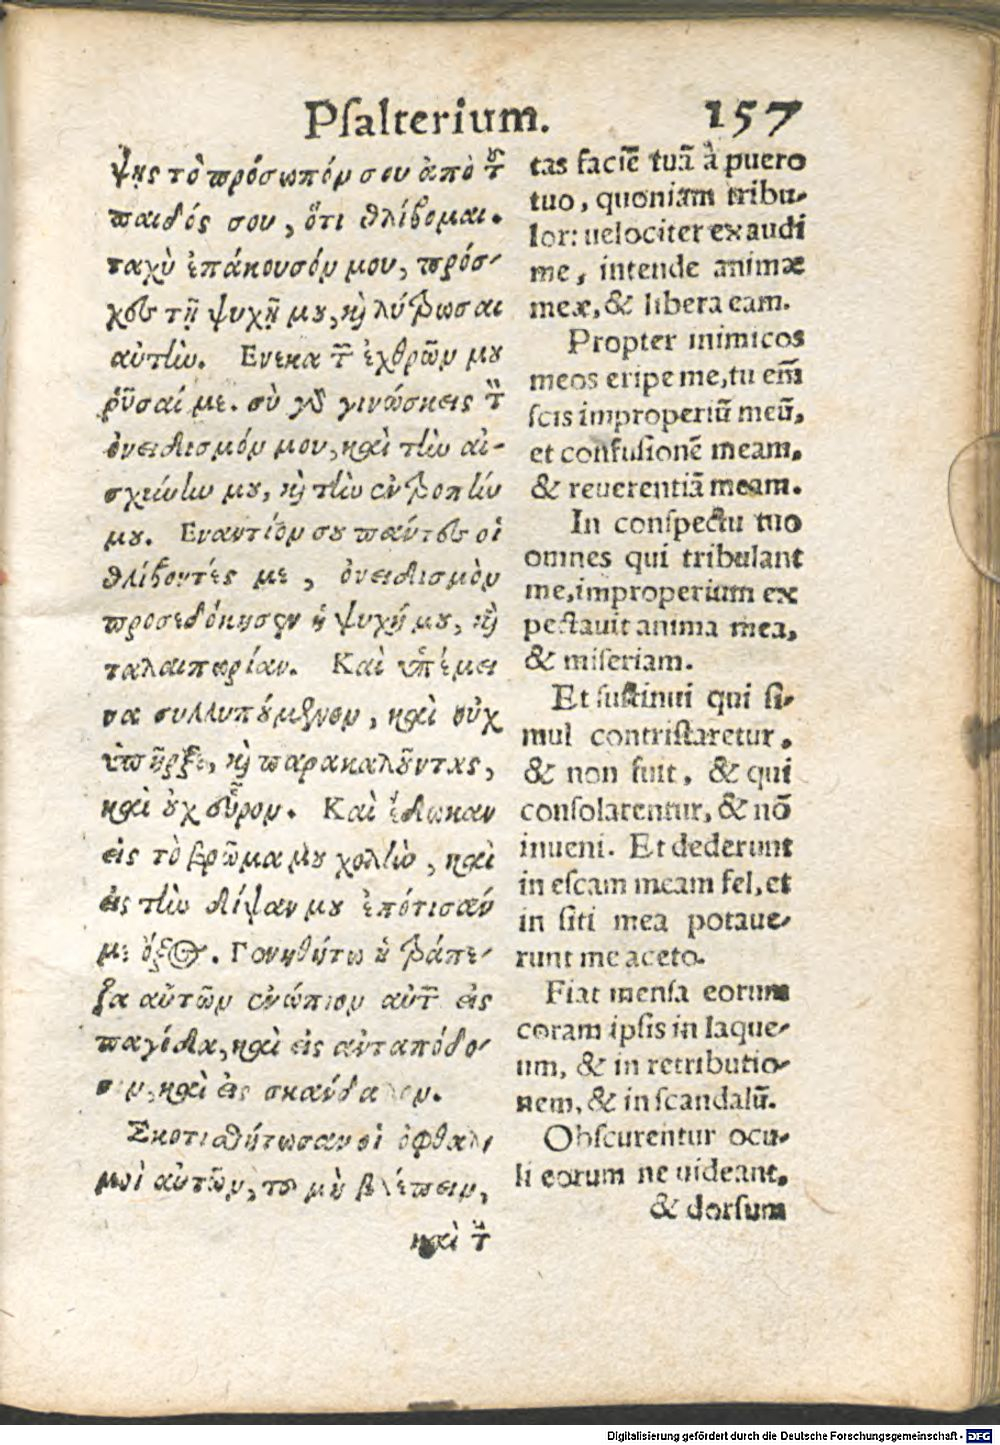 Pſalterium. 157
ψῃς τὸ πρόσωπόν σου ἀπὸ τ͂
παιδός σου, ὅτι θλίβομαι.
ταχὺ ἐπάκουσόν μου, πρόσ-
χες τῇ ψυχῇ μȣ, κ̀ λύτρωσαι
αὐτὴν. Ενεκα τ͂ ἐχθρῶν μȣ
ῥῦσαί με. σὺ γδ γινώσκεις τ̀
ὀνειδισμόν μου, καὶ τὴν αἰ-
σχύνην μȣ, κ̀ τὴν ἐντροπήν
μȣ. Εναντίον σȣ πάντες οἱ
θλίβοντές με, ὀνειδισμὸν
προσεδόκησεν ἡ ψυχή μȣ, κ̀
ταλαιπωρίαν. Καὶ ὑπέμει
να συλλυπȣ́μενον, καὶ οὐχ
ὑπῆρξε, κ̀ παρακαλȣ͂ντας,
καὶ ȣ̓χ εὗρον. Καὶ ἔδωκαν
εἰς τὸ βρῶμα μȣ χολὴν, καὶ
εἰς τὴν δίψαν μȣ ἐπότισάν
με ὄξος. Γενηθήτω ἡ τράπε-
ζα αὐτῶν ἐνώπιον αὐτ͂ εἰς
παγίδα, καὶ εἰς ἀνταπόδο-
σιν, καὶ εἰς σκάνδαλον.
Σκοτισθήτωσαν οἱ ὀφθαλ-
μοὶ αὐτῶν, τοῦ μὴ βλέπειν,
καὶ τ̀
tas faciē tuā à puero
tuo, quoniam tribu-
lor: uelociter exaudi
me, intende animæ
meæ, & libera eam.
Propter inimicos
meos eripe me, tu em̄
ſcis improperiū meū,
et confuſionē meam,
& reuerentiā meam.
In conſpectu tuo
omnes qui tribulant
me, improperium ex
pectauit anima mea,
& miſeriam.
Et ſuſtinui qui ſi-
mul contriſtaretur,
& non fuit, & qui
conſolarentur, & nō
inueni. Et dederunt
in eſcam meam fel, et
in ſiti mea potaue-
runt me aceto.
Fiat menſa eorum
coram ipſis in laque-
um, & in retributio-
nem, & in ſcandalū.
Obſcurentur ocu-
li eorum ne uideant,
& dorſum
Digitalisierung gefördert durch die Deutsche Forschungsgemeinschaft - DFG